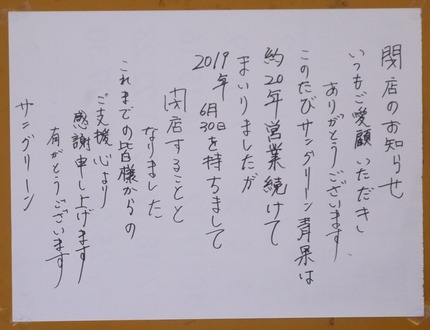 閉店のお知らせ
いつもご愛顧いただきし
ありがとうございます、
このたびサングリーン青果は
約20年営業続けて
まいりましたが
2019年6月30日を持ちまして
閉店することと
なりました
これまでの皆様からの
ご支援心より
感謝申し上げます
有がとうございます
サングリーン